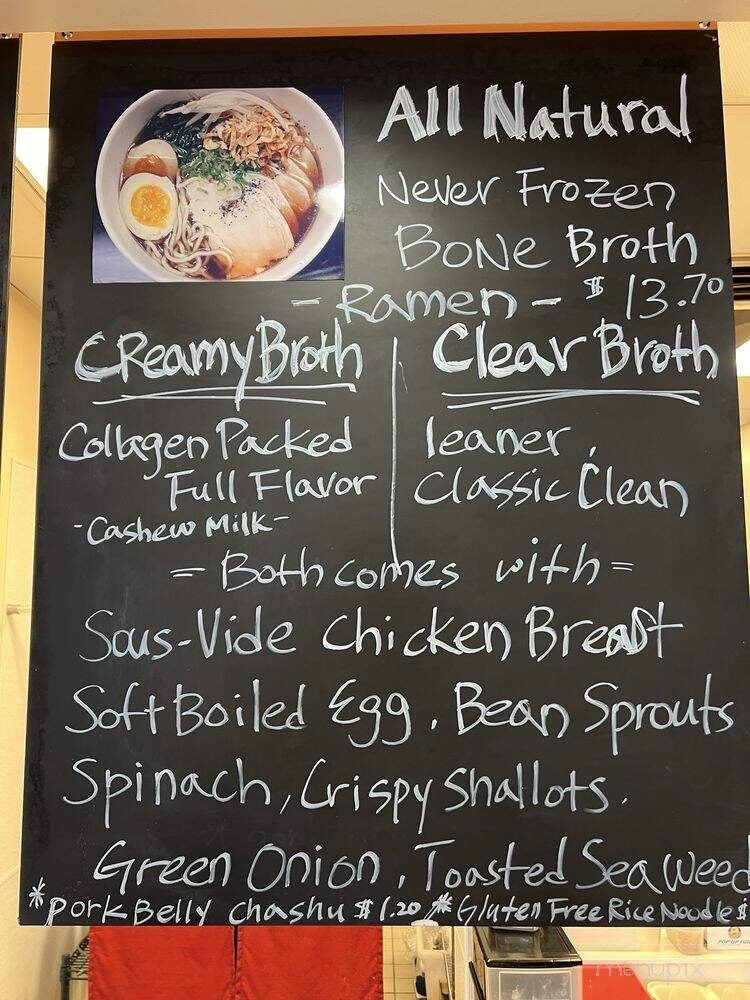 All Natural
Never Frozen
Bone Broth
- Ramen - $13.70
Creamy Broth
Collagen Packed
Full Flavor
-Cashew Milk-
Clear Broth
leaner,
Classic Clean
= Both comes with =
Sous-Vide Chicken Breast
Soft Boiled Egg, Bean Sprouts
Spinach, Crispy Shallots.
Green Onion, Toasted Seaweed
*Pork Belly Chashu $1.20 *Gluten Free Rice Noodle $
menupix